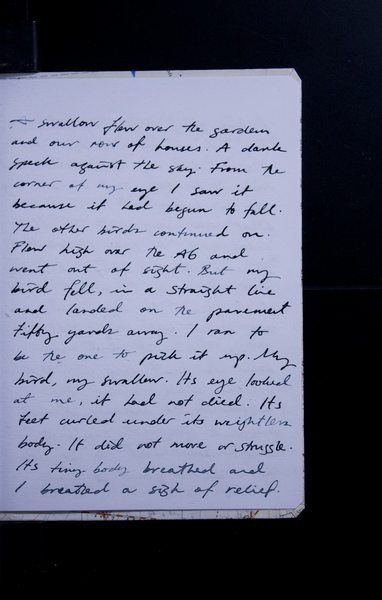 A swallow flew over the gardens
and our row of houses. A dark
speck against the sky. From the
corner of my eye I saw it
because it had begun to fall.
The other birds continued on.
Flew high over the A6 and
went out of sight. But my
bird fell, in a straight line
and landed on the pavement
fifty yards away. I ran to
be the one to pick it up. My
bird, my swallow. Its eye looked
at me, it had not died. Its
feet curled under its weightless
body. It did not move or struggle.
Its tiny body breathed and
I breathed a sigh of relief.